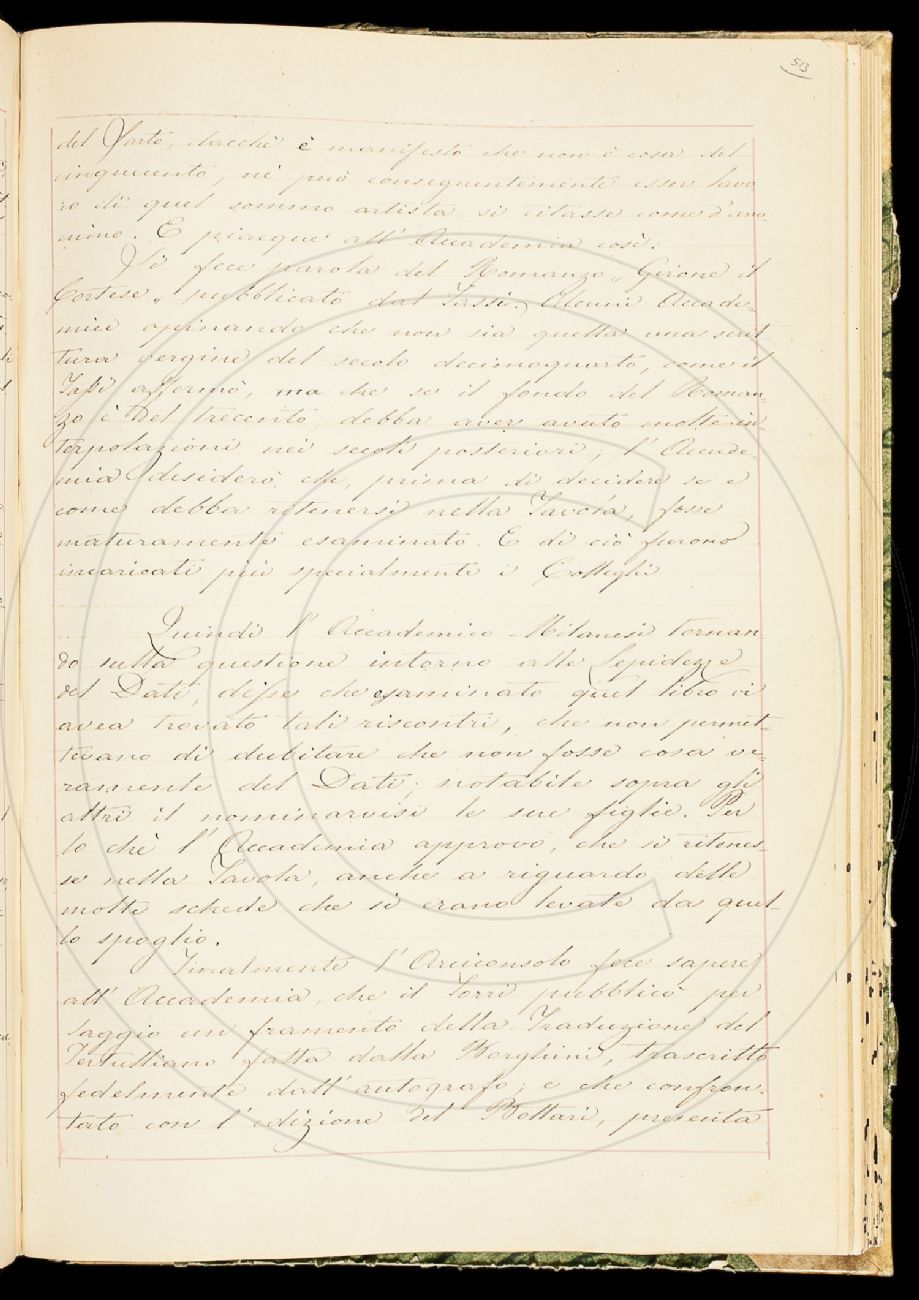 513
del Sarto, dacchè è manifesto che non è cosa del
cinquecento, nè può conseguentemente esser lavo
ro di quel sommo artista si citasse come d'ano
nimo. E piacque all' Accademia così.
Si fece parola del Romanzo „ Girone il
Cortese „ pubblicato dal Tassi. Alcuni Accade-
mici opinando che non sia quella una scrit
tura vergine del secolo decimoquarto, come il
Tassi affermò, ma che se il fondo del Roman-
zo è del trecento, debba aver avuto molte in-
terpolazioni nei secoli posteriori; l' Accade-
mia desiderò che, prima di decidere se e
come debba ritenersi nella Tavola, fosse
maturamente esaminato. E di ciò furono
incaricati più specialmente i Colleghi
Quindi l' Accademico Milanesi tornan
do sulla questione intorno alle Lepidezze
del Dati, disse che esaminato quel libro vi
avea trovato tali riscontri, che non permet-
tevano di dubitare che non fosse cosa ve-
ramente del Dati; notabile sopra gli
altri il nominarvisi le sue figlie. Per
lo chè l' Accademia approvò, che si ritenes-
se nella Tavola, anche a riguardo delle
molte schede che si erano levate da quel-
lo spoglio.
Finalmente l' Arciconsolo fece sapere
all' Accademia, che il Torri pubblicò per
saggio un framento della Traduzione del
Tertulliano fatta dalla Borghini, trascritto
fedelmente dall' autografo; e che confron-
tato con l' edizione del Bottari, presenta